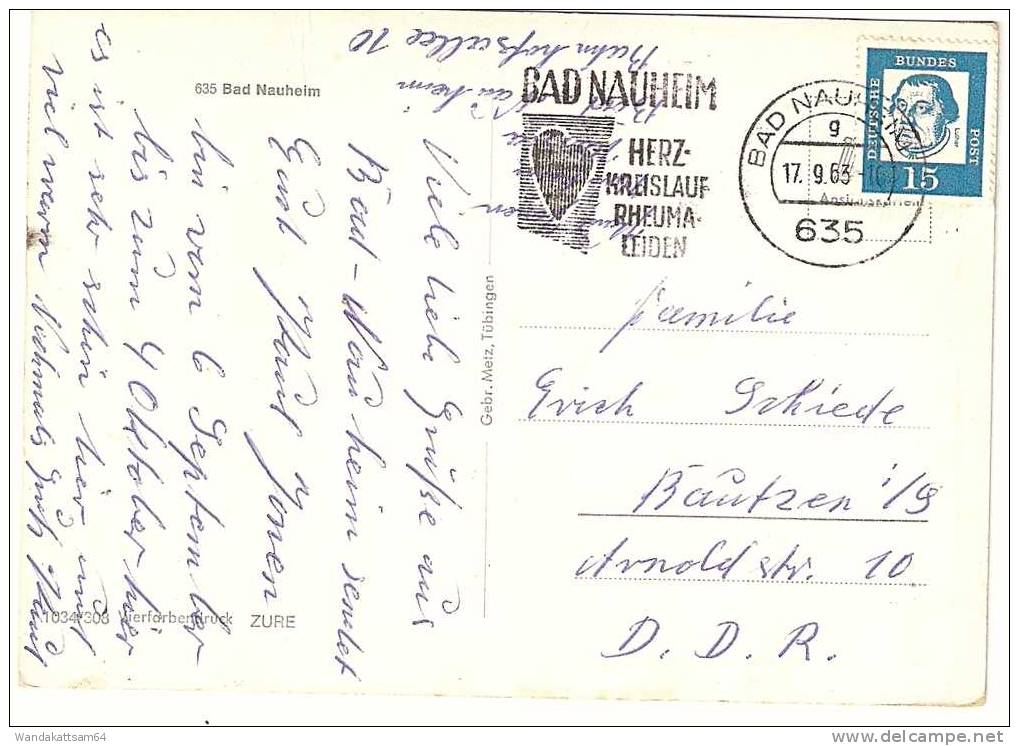 635 Bad Nauheim
Viele liebe Grüße aus
Bad-Nauheim sendet
Euch
bin vom 6 September
bis zum 4 Oktober hier
es ist sehr schön hier und
viel warm Nochmals Gruß
Bahnhofsallee 10
BAD NAUHEIM
HERZ-
KREISLAUF
RHEUMA-
LEIDEN
BAD NAUHEIM
g
17. 9.63
635
DEUTSCHE
BUNDES
POST
15
Familie
Erich Schiede
Bautzen i/S
Arnoldstr. 10
D. D. R.
Gebr. Metz, Tübingen
1034/308 Vierfarbendruck ZURE
Wandakattsam64